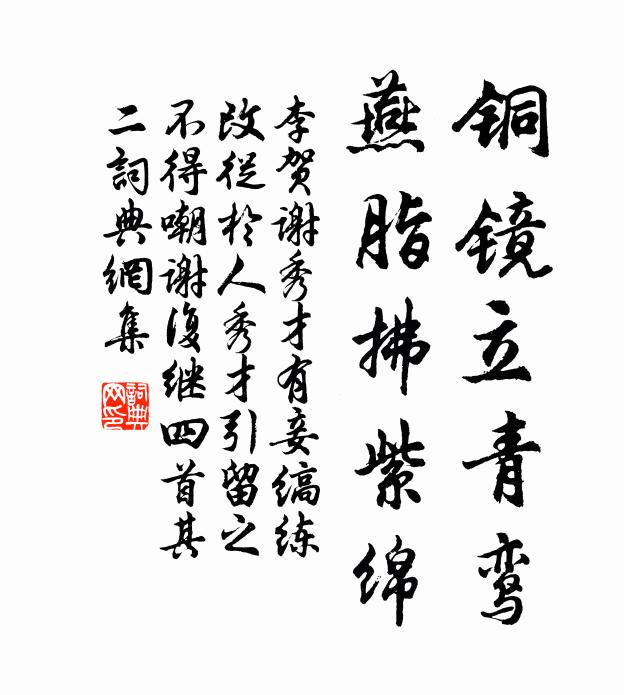 铜镜立青鸾
燕脂拂紫绵
李贺谢秀才有妾缟练
改从於人秀才引留之
不得嘲谢復继四首其
二詞典網集
詞典
网印